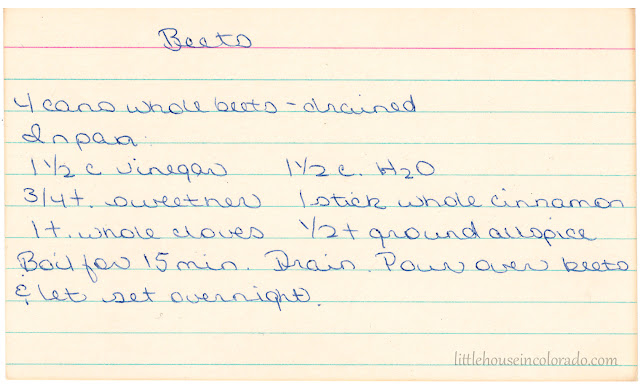 Beets
4 cans whole beets - drained
In pan:
1 1/2 c vinegar 1 1/2 c. H2O
3/4 t. sweetner 1 stick whole cinnamon
1 t. whole cloves 1/2 t ground allspice
Boil for 15 min. Drain. Pour over beets
& let set overnight.
littlehouseincolorado.com